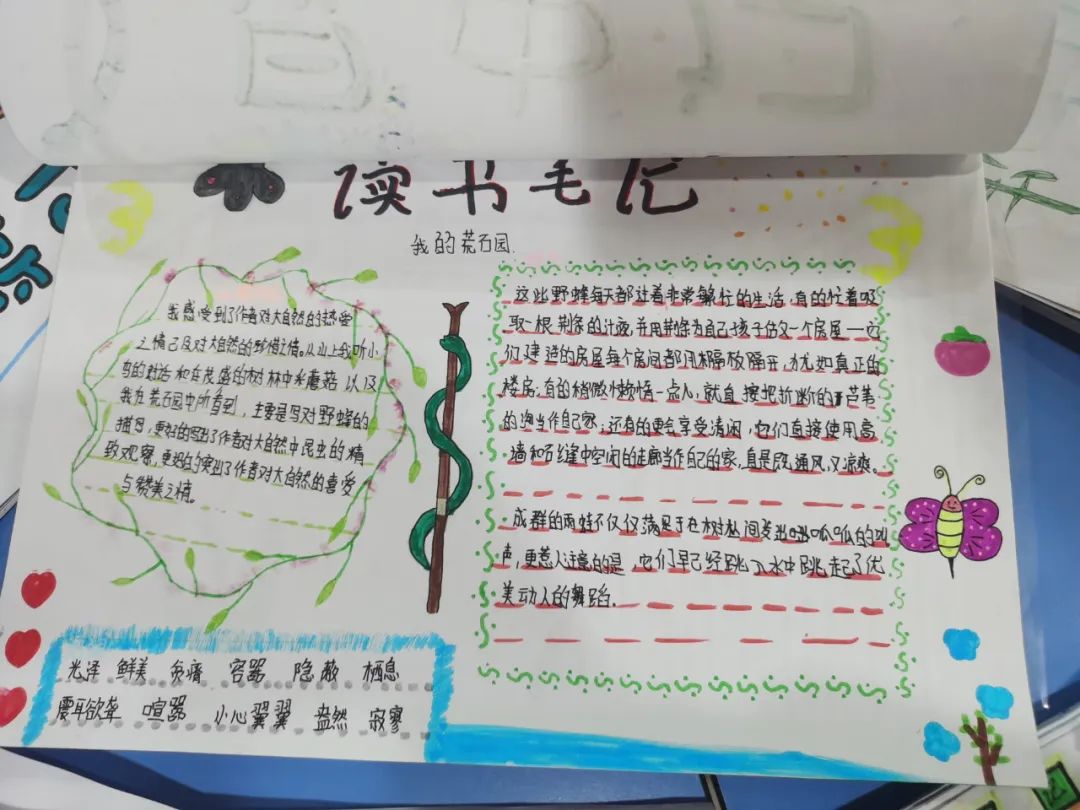 读书笔记
我的荒石园
我感受到了作者对大自然的热爱
之情己及对大自然的珍惜之情。从山上我听小
鸟的对话和在茂盛的树林中采蘑菇以及
我在荒石园中所看到,主要是写对野蜂的
描写,更好的写出了作者对大自然中昆虫的精
致观察,更好的突出了作者对大自然的喜爱
与赞美之情。
这些野蜂每天都过着非常繁忙的生活,有的忙着吸
取一根荆条的汁液,并用荆条为自己孩子估又一个房屋——它
们建造的房屋每个房间都用木隔放隔开,犹如真正的
楼房;有的稍微懒惰一点人,就直接把折断的芦苇
的沟当作自己家;还有的更会享受清闲,它们直接使用高
墙和石缝中空闲的走廊当作自己的家,真是既通风,又凉爽。
成群的雨蛙不仅仅满足于在树丛间发出呱呱的叫
声,更惹人注意的是,它们早已经跳入水中跳起了优
美动人的舞蹈.
光泽 鲜美 贫瘠 容器 隐蔽 栖息
震耳欲聋 喧嚣 小心翼翼 盎然 寂寥